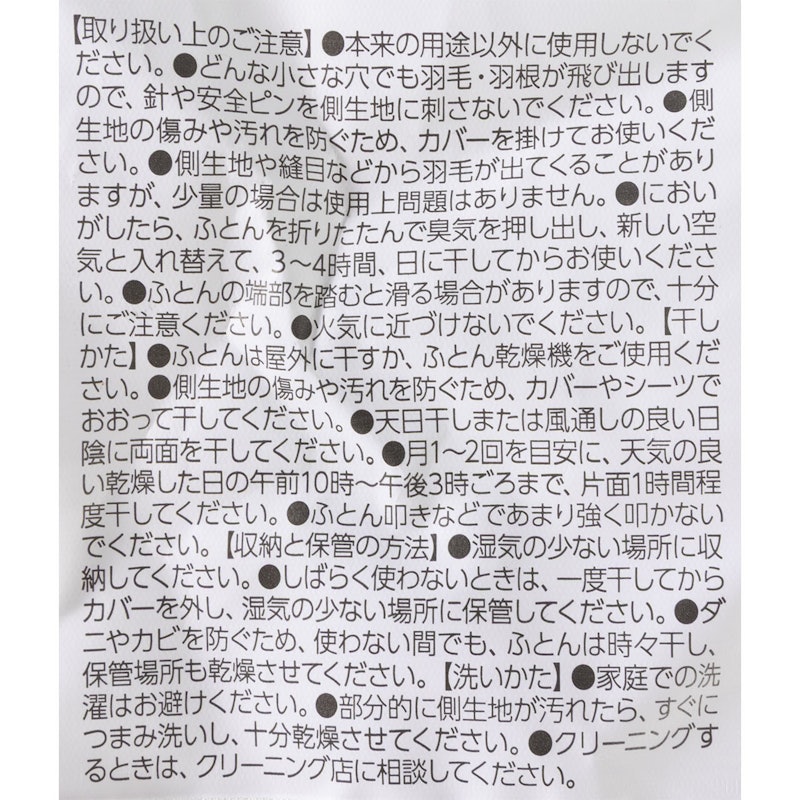 【取り扱い上のご注意】●本来の用途以外に使用しないでく
ださい。●どんな小さな穴でも羽毛・羽根が飛び出します
ので、針や安全ピンを側生地に刺さないでください。●側
生地の傷みや汚れを防ぐため、カバーを掛けてお使いくだ
さい。●側生地や縫目などから羽毛が出てくることがあり
ますが、少量の場合は使用上問題はありません。●におい
がしたら、ふとんを折りたたんで臭気を押し出し、新しい空
気と入れ替えて、3〜4時間、日に干してからお使いくださ
い。●ふとんの端部を踏むと滑る場合がありますので、十分
にご注意ください。●火気に近づけないでください。【干し
かた】●ふとんは屋外に干すか、ふとん乾燥機をご使用くだ
さい。●側生地の傷みや汚れを防ぐため、カバーやシーツで
おおって干してください。●天日干しまたは風通しの良い日
陰に両面を干してください。●月1〜2回を目安に、天気の良
い乾燥した日の午前10時〜午後3時ごろまで、片面1時間程
度干してください。●ふとん叩きなどであまり強く叩かない
でください。【収納と保管の方法】●湿気の少ない場所に収
納してください。●しばらく使わないときは、一度干してから
カバーを外し、湿気の少ない場所に保管してください。●ダ
ニやカビを防ぐため、使わない間でも、ふとんは時々干し、
保管場所も乾燥させてください。【洗いかた】●家庭での洗
濯はお避けください。●部分的に側生地が汚れたら、すぐに
つまみ洗いし、十分乾燥させてください。●クリーニングす
るときは、クリーニング店に相談してください。